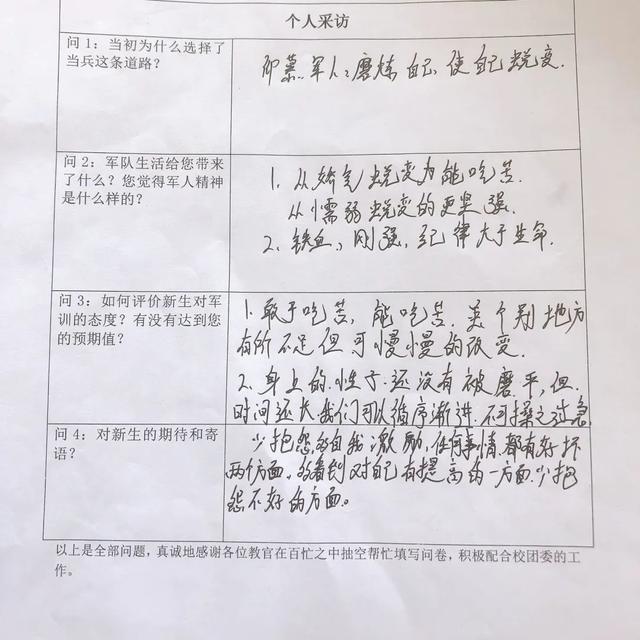 个人采访
问 1：当初为什么选择了
当兵这条道路？
仰慕军人；磨炼自己，使自己蜕变．
问 2：军队生活给您带来
了什么？您觉得军人精神
是什么样的？
1、从娇气蜕变为能吃苦．
从懦弱蜕变的更坚强．
2、铁血，刚强，纪律大于生命．
问 3：如何评价新生对军
训的态度？有没有达到您
的预期值？
1、敢于吃苦，能吃苦．某个别地方
有所不足但可慢慢的改变．
2、身上的性子还没有被磨平，但
时间还长我们可以循序渐进．不可操之过急
问 4：对新生的期待和寄
语？
少抱怨多自我激励，任何事情都有好坏
两个方面，多看到对自己有提高的一方面．少抱
怨不好的方面。
以上是全部问题，真诚地感谢各位教官在百忙之中抽空帮忙填写问卷，积极配合校团委的工
作。